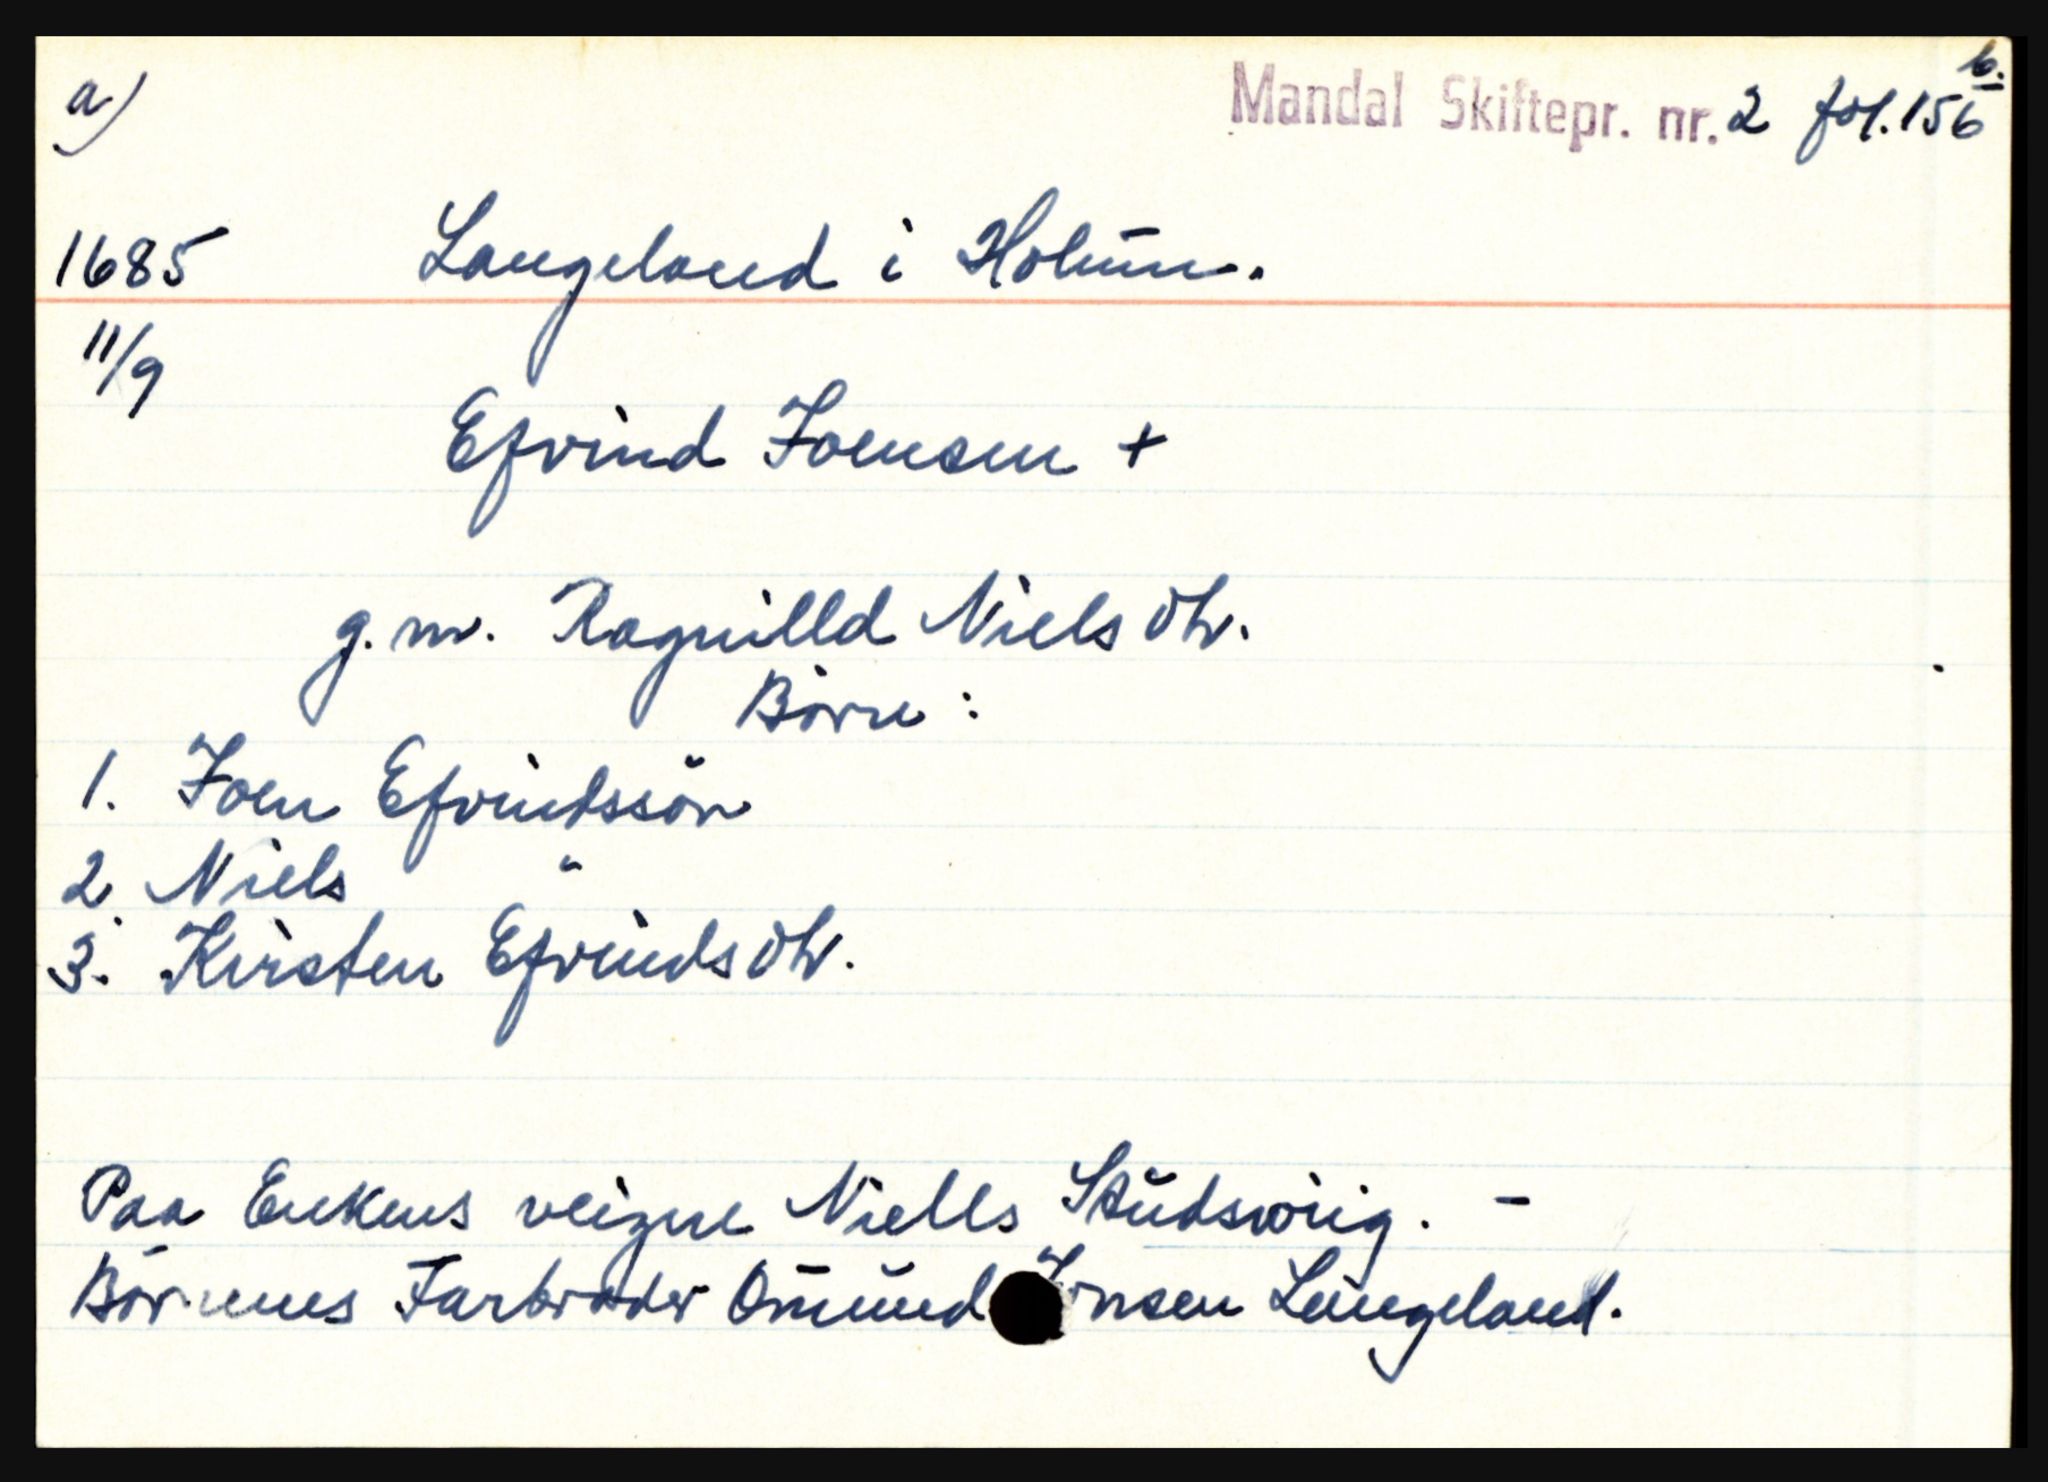 a)
Mandal Skiftepr. nr. 2 fol. 156 b.
1685 Langeland i Holum.
11/9
Efvind Joensen +
g. m. Ragnilld Nielsdtr.
Børn:
1. Joen Efvindssøn
2. Niels "
3. Kirsten Efvindsdtr.
Paa Enkens veigne Niells Studsviig. -
Børnenes Farbroder Omund Jonsen Langeland.